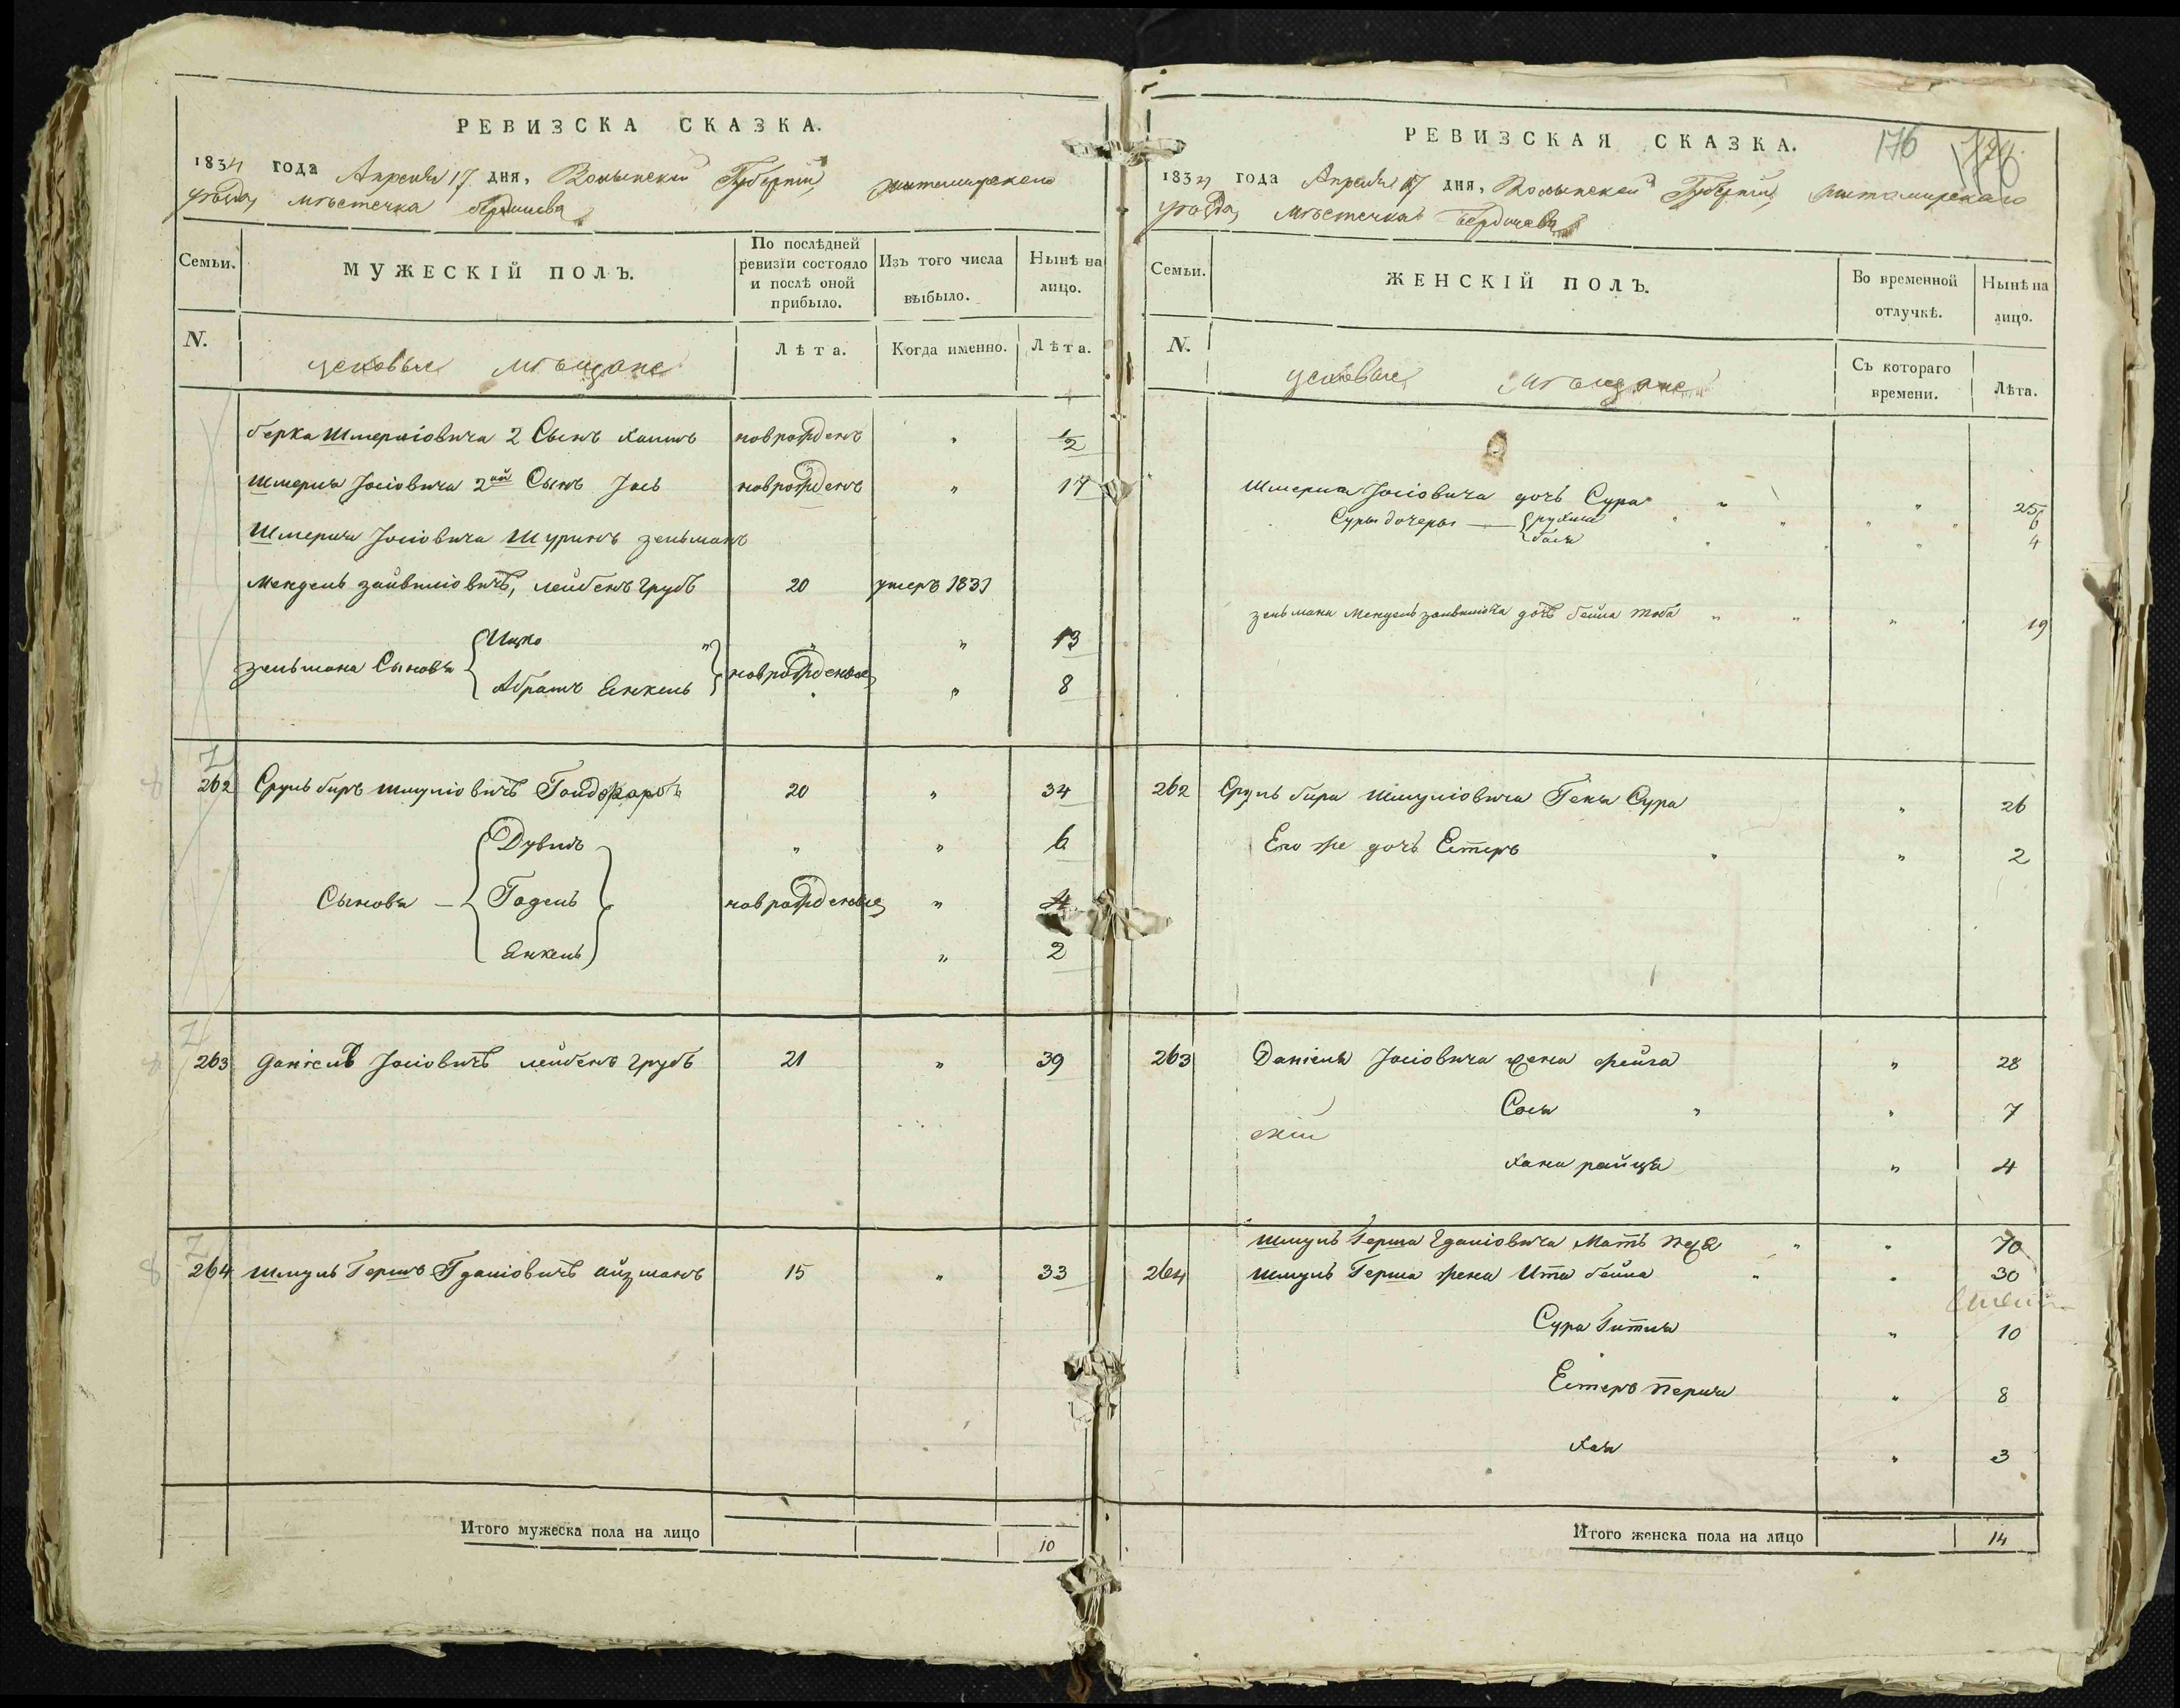 РЕВИЗСКА СКАЗКА.
1834 года Апреля 17 дня, Волынской Губернии, житомирскаго
уѣзда, мѣстечка бердичева
Семьи.
МУЖЕСКІЙ ПОЛЪ.
По послѣдней ревизіи состояло и послѣ оной прибыло.
Изъ того числа выбыло.
Нынѣ на лицо.
N.
Лѣта.
Когда именно.
Лѣта.
цеховые мѣщане
берка Шмерліовича 2 Сынъ Хаимъ новрожденъ " 1/2
Шмерла Іосіовича 2ой Сынъ Іось новрожденъ " 17
Шмерла Іосіовича Шуринъ зельманъ
Мендель зайвиліовичъ, лейбенгрубъ 20 умеръ 1831
Ицко " " " 13
зельмана Сыновя новрожденые
Абрамъ Янкель " " 8
262 Сруль беръ шмуліовичъ 20 " 34
Дувидъ " " 6
Сыновя — Годель новрожденые " 4
Янкель " 2
263 Даніель Іосіовичъ лейбенъ грубъ 21 " 39
264 шмуль Гершъ Гдаліовичъ айзманъ 15 " 33
Итого мужеска пола на лицо 10
РЕВИЗСКАЯ СКАЗКА.
176
1834 года Апреля 17 дня, Волынской Губерніи, житомирскаго
уѣзда, мѣстечка бердичева
Семьи.
ЖЕНСКІЙ ПОЛЪ.
Во временной отлучкѣ.
Нынѣ на лицо.
N.
Съ котораго времени.
Лѣта.
цеховые мѣщане
Шмерла Іосіовича дочь Сура " " 25
Суры дочеры — рухля " " " " 6
бася " " " 4
зельмана Мендель зайвиліовича дочь бейла тоба " " " " 19
262 Сруль бера шмуліовича Жена Сура " 26
Его же дочь Естеръ " " 2
263 Даніеля Іосіовича жена фейга " 28
Сося " " 7
хана райця " 4
шмуль Герша Гдаліовича Мать " " 70
264 шмуль Герша жена Ита бейла " " 30
Сура Гитля " 10
Естеръ перля " 8
Хая " 3
Итого женска пола на лицо 14